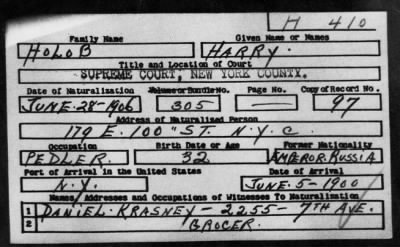 H 410
Family Name Given Name or Names
HOLOB HARRY.
Title and Location of Court
SUPREME COURT, NEW YORK COUNTY.
Date of Naturalization Volume or Bundle No. Page No. Copy of Record No.
JUNE-28-1906 305 — 97
Address of Naturalized Person
179 E. 100" ST. N.Y.C.
Occupation Birth Date or Age Former Nationality
PEDLER. 32 EMPEROR RUSSIA
Port of Arrival in the United States Date of Arrival
N.Y. JUNE-5-1900
Names, Addresses and Occupations of Witnesses To Naturalization
1 DANIEL KRASNEY - 2255 - 7TH AVE.
2 GROCER.